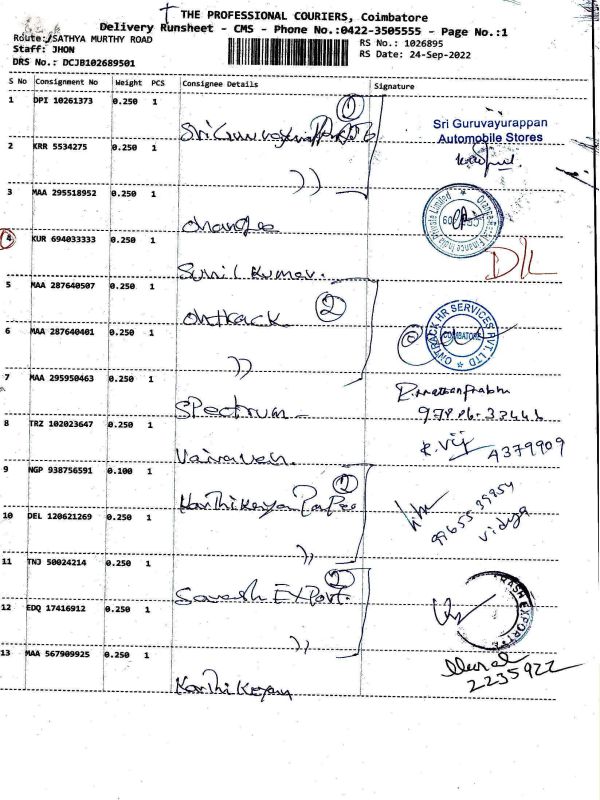 THE PROFESSIONAL COURIERS, Coimbatore
Delivery Runsheet - CMS - Phone No.:0422-3505555 - Page No.:1
Route:/SATHYA MURTHY ROAD
RS No.: 1026895
Staff: JHON
RS Date: 24-Sep-2022
DRS No.: DCJB102689501
S No Consignment No Weight PCS Consignee Details Signature
1 DPI 10261373 0.250 1
①
Sri Guruvayurappan
Sri Guruvayurappan
Automobile Stores
2 KRR 5534275 0.250 1
))
3 MAA 295518952 0.250 1
Orange
4 KUR 694033333 0.250 1
Sunil Kumar.
D/L
5 MAA 287640507 0.250 1
Ontrack ②
ONTRACK HR SERVICES PVT. LTD
COIMBATORE
6 MAA 287640401 0.250 1
))
7 MAA 295950463 0.250 1
Spectrum
8 TRZ 102023647 0.250 1
Vairavan.
R. Vij A379909
9 NGP 938756591 0.100 1
②
Karthikeyan
9965539954
Vidya
10 DEL 120621269 0.250 1
))
11 TNJ 50024214 0.250 1
②
Export.
12 EDQ 17416912 0.250 1
))
13 MAA 567909925 0.250 1
Karthikeyan
2235922